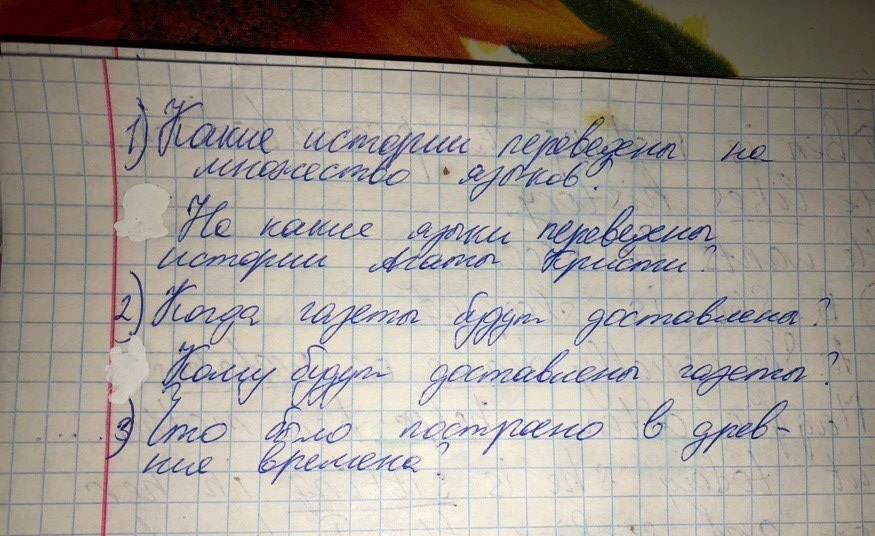 1) Какие истории переведены на
множество языков?
На какие языки переведены
истории Агаты Кристи?
2) Когда газеты будут доставлены?
Кому будут доставлены газеты?
3) Что было построено в древ-
ние времена?